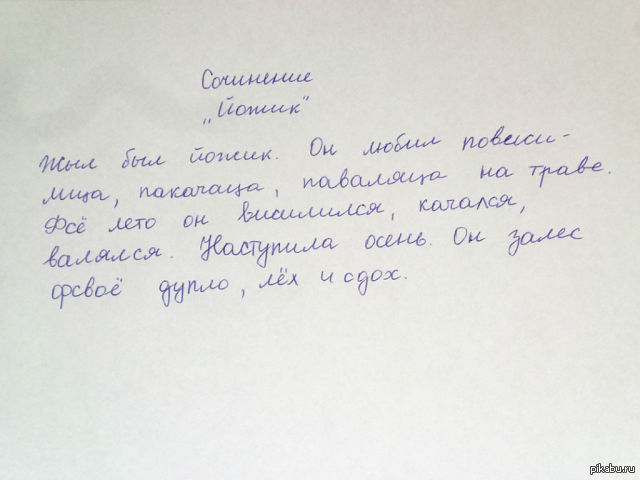 Сочинение
„Йожик“
Жыл был йожик. Он любил повиси-
лица, пакачаца, паваляца на траве.
Фсё лето он висилился, качался,
валялся. Наступила осень. Он залес
фсвоё дупло, лёх и сдох.
pikabu.ru